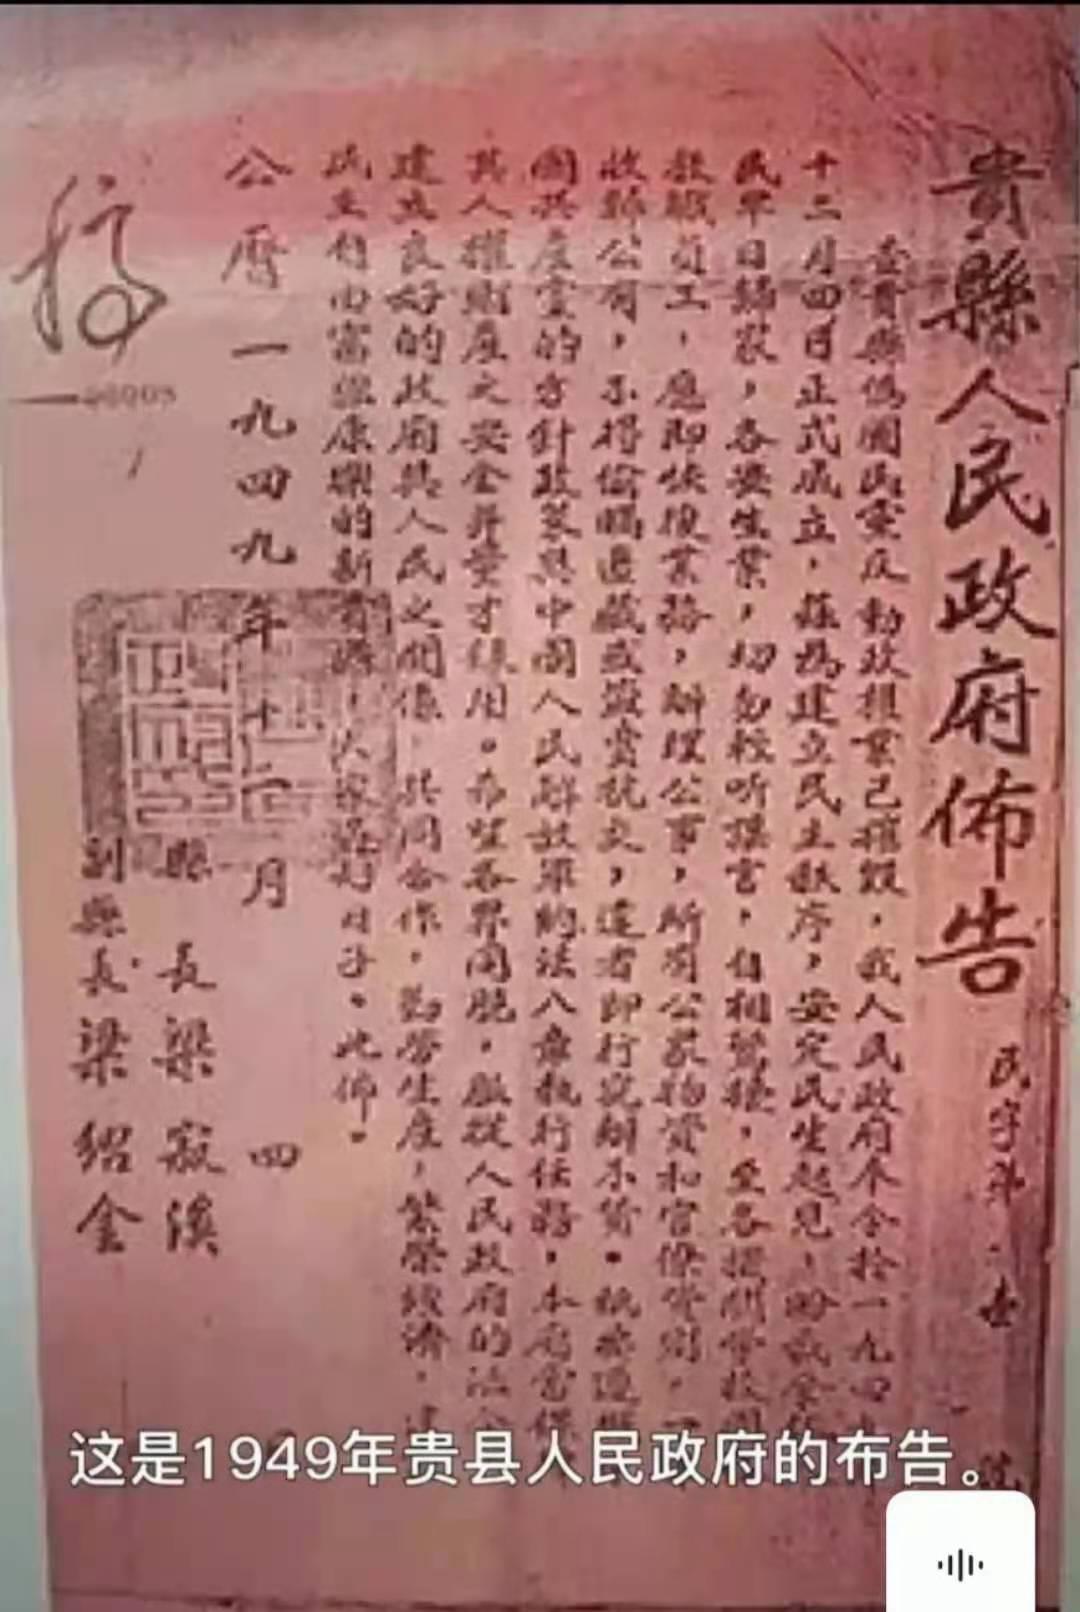 貴縣人民政府佈告
民字第 壹 號
查貴縣偽國民黨反動政權業已摧毀，我人民政府本令於一九四九
十二月四日正式成立，茲為建立民主秩序，安定民生起見，
民早日歸家，各安生業，切勿輕听謠言，自相驚擾，至各機關學校
教職員工，應即恢復業務，辦理公事，所有公家物資和官僚資財，一
收歸公有，不得偷瞞匿藏或盜賣
國共產黨的方針政策與中國人民解放軍約法八章執行任務，本府當保
其人權財產之安全并量才錄用。希望各界同胞，服從人民政府的法
建立良好的政府與人民之關係，共同合作，勤勞生產，繁榮經濟，建
民主自由富強康樂的新貴縣，大家過好日子。此佈。
公曆一九四九年十二月四
縣長梁寂溪
副縣長梁紹金
00008
这是1949年贵县人民政府的布告。